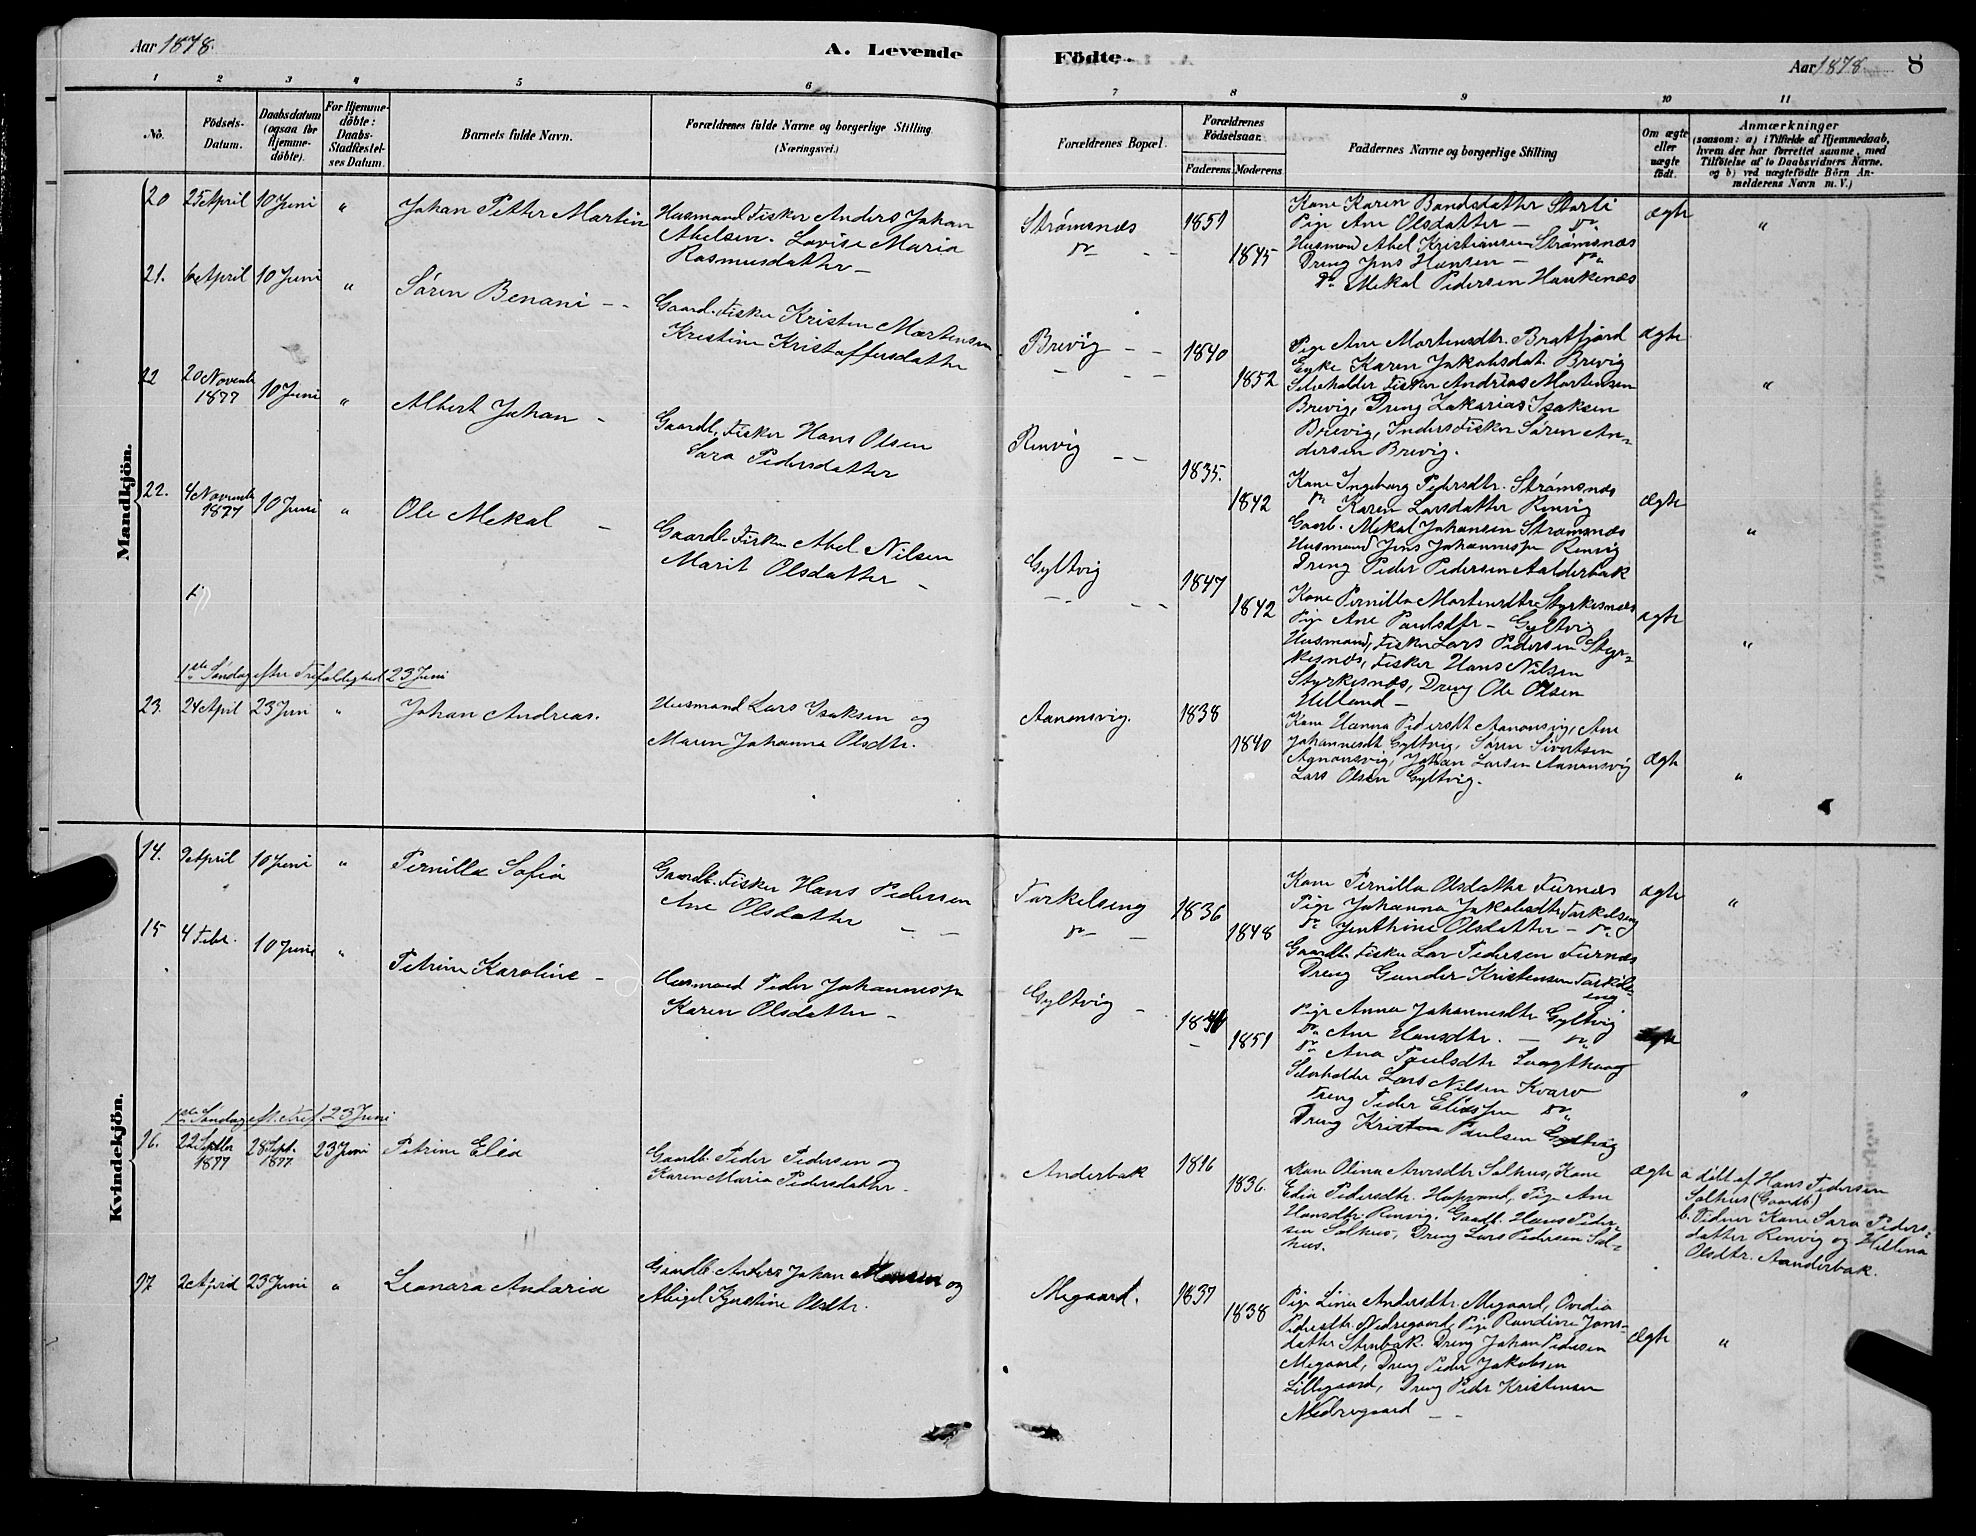 Aar 1878.
A. Levende
Födte.
Aar 1878.
8
1
2
3
4
5
6
7
8
9
10
11
No.
Födsels-
Datum.
Daabsdatum
(ogsaa for
Hjemme-
döbte).
For Hjemme-
döbte:
Daabs-
Stadfæstel-
ses Datum.
Barnets fulde Navn.
Forældrenes fulde Navne og borgerlige Stilling
(Næringsvei.)
Forældrenes Bopæl.
Forældrenes
Födselsaar.
Faderens
Moderens
Faddernes Navne og borgerlige Stilling
Om ægte
eller
uægte
födt.
Anmærkninger
(saasom: a) i Tilfælde af Hjemmedaab,
hvem der har forrettet samme, med
Tilföielse af to Daabsvidners Navne,
og b) ved uægtefödte Börn An-
melderens Navn m. V.)
Mandkjön.
20
25 April
10 Juni
"
Johan Petter Martin
Husmand Fisker Anders Johan
Abelsen. Lovise Maria
Rasmusdatter —
Strømsnæs
Do
1851
1845
Kone Karen Bandsdatter Storli
Pige Ane Olsdatter — Do
Husmand Abel Kristiansen Strømsnæs
Dreng Jens Hansen — Do
Do Mekal Pedersen Haukenæs
ægte
"
21.
6 April
10 Juni
"
Søren Benani - -
Gaardb. Fisker Kristen Mortensen
Kristine Kristoffersdatter
Brevig
1840
1852
Pige Ane Mortensdtr. Bratfjord
Enke Karen Jakobsdat. Brevig
Selveholder Fisker Andreas Mortensen
Brevig, Dreng Zakarias Isaksen
Brevig, Inders Fisker Søren An-
dersen Brevig.
ægte
"
22
20 Novemb.
1877
10 Juni
"
Albert Johan -
Gaardb. Fisker Hans Olsen
Sara Pedersdatter
Renvig
1835.
1842
Kone Ingeborg Pedersdtr. Strømsnæs
Do Karen Larsdatter Renvig
Gaardb. Mekal Johansen Strømsnæs
Husmand Jens Johannessen Renvig
Dreng Peder Pedersen Aalderbak
Ægte
"
22.
4 Novemb
1877
10 Juni
"
Ole Mekal -
Gaardb. Fisker Abel Nilsen
Marit Olsdatter -
Gyltvig
1847
1842
Kone Pernilla Mortensdtr Styrkesnæs
Pige Ane Paulsdtr - Gyltvig
Husmand, Fisker Lars Pedersen Styr-
kesnæs, Fisker Hans Nilsen
Styrkesnæs, Dreng Ole Olsen
Helland -
ægte
"
1ste Søndag efter Trefoldighed 23 Juni
23.
24 April
23 Juni
"
Johan Andreas.
Husmand Lars Isaksen og
Maren Johanna Olsdtr.
Aanonsvig.
1838
1840
Kone Hanna Pedersdt Aanonsvig, Ane
Johannesdt Gyltvig, Søren Sivertsen
Aanonsvig, Johan Larsen Aanonsvig
Lars Olsen Gyltvig.
Ægte
"
Kvindekjön.
14.
9 April
10 Juni
"
Pernilla Sofia
Gaardb. Fisker Hans Pedersen
Ane Olsdatter
Torkelseng
Do
1836
1848
Kone Pernilla Olsdatter Furnæs
Pige Johanna Jakobsdtr Torkelseng
Do Jenthine Olsdatter - Do
Gaardb. Fisker Lars Pedersen Furnæs
Dreng Gunder Kristensen Torkels-
eng
ægte
"
15
4 Febr.
10 Juni
"
Petrine Karoline -
Husmand Peder Johannessen
Karen Olsdatter -
Gyltvig
1851
Pige Anna Johannesdtr Gyltvig
Do Ane Hansdtr. - Do
Do Ana Paulsdtr Langthaug
Selveholder Lars Nilsen Kvarv
Dreng Peder Eliassen Do
Dreng Kristen Paulsen Gyltvig
ægte
"
1ste Søndag eft. Tref. 23 Juni
16.
22 Septbr
1877
28 Sept.
1877
23 Juni
Petrine Elea
Gaardb. Peder Pedersen og
Karen Maria Pedersdatter.
Anderbak
1816
1836.
Kone Olina Arvesdtr Solhus, Kone
Edia Pedersdtr. Hopsund, Pige Ane
Hansdtr. Renvig. Gaardb. Hans Peder-
sen Solhus, Dreng Lars Pedersen Sol-
hus.
Ægte
a. döbt af Hans Pedersen
Solhus (Gaardb)
b. Vidner Kone Sara Peders-
datter Renvig og Hellena
Olsdtr. Aanderbak.
17
2 April
23 Juni
"
Leonara Andaria
Gaardb. Anders Johan Monsen og
Abigel Kjerstine Olsdtr.
Megaard.
1837
1838
Pige Lina Andersdtr. Megaard, Ovedia
Pedersdtr. Nedregaard, Pige Randine Jons-
datter Stenbak. Dreng Johan Pedersen
Megaard, Dreng Peder Jakobsen
Lillegaard, Dreng Peder Kristensen
Nedregaard - -
Ægte
"